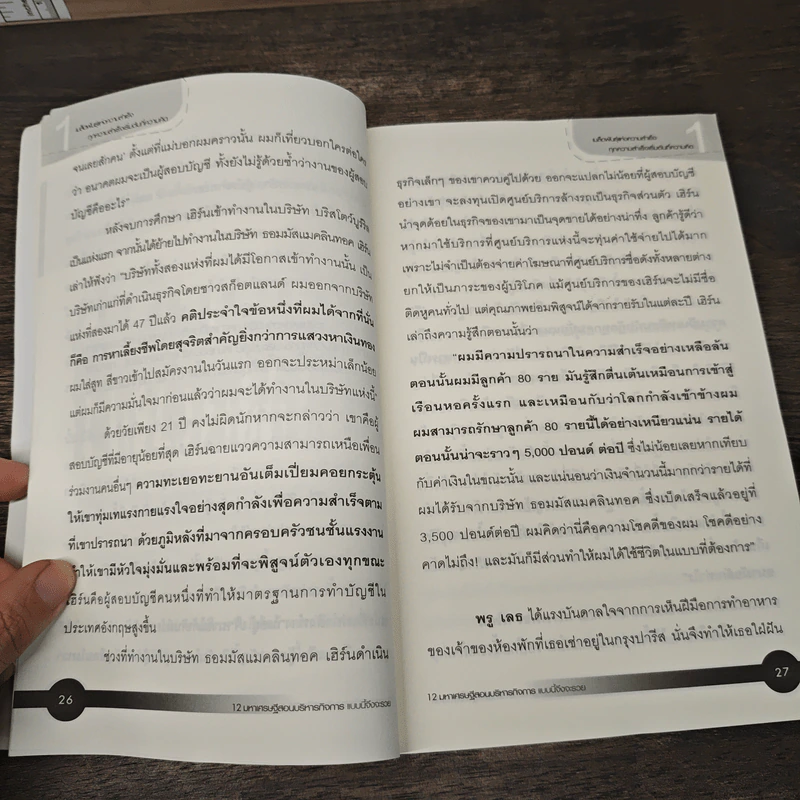 1
เมล็ดพันธุ์แห่งความสำเร็จ
ทุกความสำเร็จเริ่มต้นที่ความคิด
จนเลยสักคน' ตั้งแต่ที่แม่บอกผมคราวนั้น ผมก็เที่ยวบอกใครต่อใคร
ว่า อนาคตผมจะเป็นผู้สอบบัญชี ทั้งยังไม่รู้ด้วยซ้ำว่างานของผู้สอบ
บัญชีคืออะไร"
หลังจบการศึกษา เฮิร์นเข้าทำงานในบริษัท
เป็นแห่งแรก จากนั้นได้ย้ายไปทำงานในบริษัท ธอมมัสแมคลินทอค เฮิร์น
เล่าให้ฟังว่า "บริษัททั้งสองแห่งที่ผมได้มีโอกาสเข้าทำงานนั้น เป็น
บริษัทเก่าแก่ที่ดำเนินธุรกิจโดยชาวสก็อตแลนด์ ผมออกจากบริษัท
แห่งที่สองมาได้ 47 ปีแล้ว คติประจำใจข้อหนึ่งที่ผมได้จากที่นั่น
ก็คือ การหาเลี้ยงชีพโดยสุจริตสำคัญยิ่งกว่าการแสวงหาเงินทอง
ผมใส่สูท สีขาวเข้าไปสมัครงานในวันแรก ออกจะประหม่าเล็กน้อย
แต่ผมก็มีความมั่นใจมาก่อนแล้วว่าผมจะได้ทำงานในบริษัทแห่งนี้"
ด้วยวัยเพียง 21 ปี คงไม่ผิดนักหากจะกล่าวว่า เขาคือผู้
สอบบัญชีที่มีอายุน้อยที่สุด เฮิร์นฉายแววความสามารถเหนือเพื่อน
ร่วมงานคนอื่นๆ ความทะเยอทะยานอันเต็มเปี่ยมคอยกระตุ้น
ให้เขาทุ่มเทแรงกายแรงใจอย่างสุดกำลังเพื่อความสำเร็จตาม
ที่เขาปรารถนา ด้วยภูมิหลังที่มาจากครอบครัวชนชั้นแรงงาน
ทำให้เขามีหัวใจมุ่งมั่นและพร้อมที่จะพิสูจน์ตัวเองทุกขณะ
เฮิร์นคือผู้สอบบัญชีคนหนึ่งที่ทำให้มาตรฐานการทำบัญชีใน
ประเทศอังกฤษสูงขึ้น
ช่วงที่ทำงานในบริษัท ธอมมัสแมคลินทอค เฮิร์นดำเนิน
26
12 มหาเศรษฐีสอนบริหารกิจการ แบบนี้จึงจะรวย
เมล็ดพันธุ์แห่งความสำเร็จ
ทุกความสำเร็จเริ่มต้นที่ความคิด
1
ธุรกิจเล็กๆ ของเขาควบคู่ไปด้วย ออกจะแปลกไม่น้อยที่ผู้สอบบัญชี
อย่างเขา จะลงทุนเปิดศูนย์บริการล้างรถเป็นธุรกิจส่วนตัว เฮิร์น
นำจุดด้อยในธุรกิจของเขามาเป็นจุดขายได้อย่างน่าทึ่ง ลูกค้ารู้ดีว่า
หากมาใช้บริการที่ศูนย์บริการแห่งนี้จะทุ่นค่าใช้จ่ายไปได้มาก
เพราะไม่จำเป็นต้องจ่ายค่าโฆษณาที่ศูนย์บริการชื่อดังทั้งหลายต่าง
ยกให้เป็นภาระของผู้บริโภค แม้ศูนย์บริการของเฮิร์นจะไม่มีชื่อ
ติดหูคนทั่วไป แต่คุณภาพย่อมพิสูจน์ได้จากรายรับในแต่ละปี เฮิร์น
เล่าถึงความรู้สึกตอนนั้นว่า
"ผมมีความปรารถนาในความสำเร็จอย่างเหลือล้น
ตอนนั้นผมมีลูกค้า 80 ราย มันรู้สึกตื่นเต้นเหมือนการเข้าสู่
เรือนหอครั้งแรก และเหมือนกับว่าโลกกำลังเข้าข้างผม
ผมสามารถรักษาลูกค้า 80 รายนี้ได้อย่างเหนียวแน่น รายได้
ตอนนั้นน่าจะราวๆ 5,000 ปอนด์ ต่อปี ซึ่งไม่น้อยเลยหากเทียบ
กับค่าเงินในขณะนั้น และแน่นอนว่าเงินจำนวนนี้มากกว่ารายได้ที่
ผมได้รับจากบริษัท ธอมมัสแมคลินทอค ซึ่งเบ็ดเสร็จแล้วอยู่ที่
3,500 ปอนด์ต่อปี ผมคิดว่านี่คือความโชคดีของผม โชคดีอย่าง
คาดไม่ถึง! และมันก็มีส่วนทำให้ผมได้ใช้ชีวิตในแบบที่ต้องการ"
พรู เลธ ได้แรงบันดาลใจจากการเห็นฝีมือการทำอาหาร
ของเจ้าของห้องพักที่เธอเช่าอยู่ในกรุงปารีส นั่นจึงทำให้เธอใฝ่ฝัน
12 มหาเศรษฐีสอนบริหารกิจการ แบบนี้จึงจะรวย
27